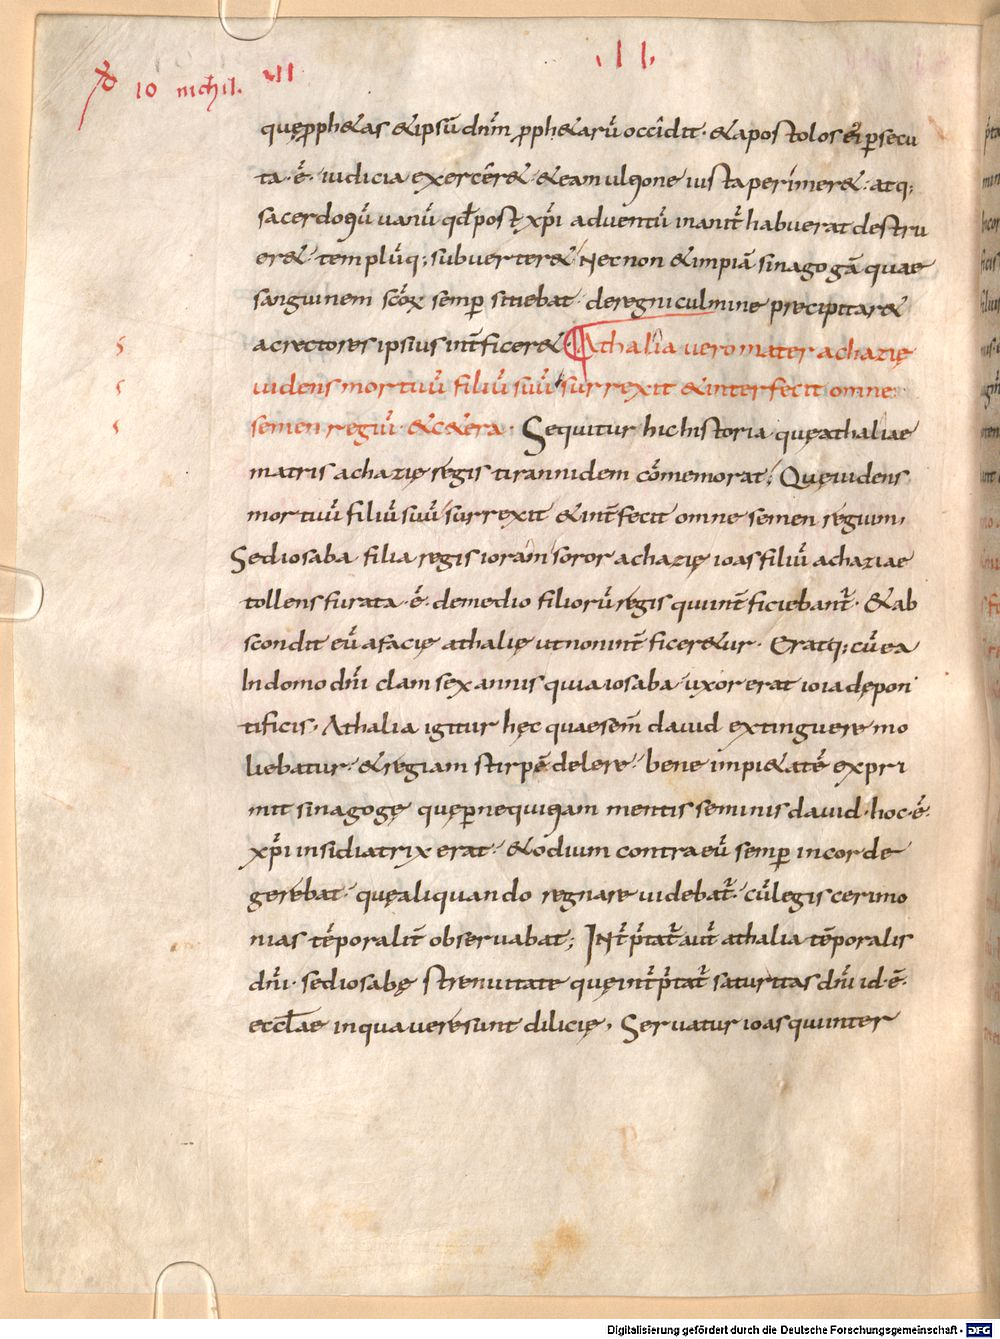 .II.
10 nichil. .II
quę ꝓph&as & ipsū dn̄m ꝓph&arū occidit · & apostolos ei' ꝑsecu
ta · ē · iudicia exercer& · & eam ulꝯone iusta perimer& · atq;
sacerdoꝯū uanū qđ post xp̄i adventū inanit̄ habuerat destru
er& · templūq; subverter& Nec non & impiā sinagogā quae
sanguinem scōꝝ semꝑ sitiebat · de regni culmine precipitar&
ac rectores ipsius int̄ficer& · Athalia vero mater achazię
videns mortuū filiū suū surrexit & interfecit omne
semen regiū · & c&era · Sequitur hic historia quę athaliae
matris achazię regis tirannidem cōmemorat; Quę uidens
mortuū filiū suū surrexit & int̄fecit omne semen regium,
Sed iosaba filia regis ioram soror achazię ioas filiū achaziae
tollens furata · ē · de medio filiorū regis qui int̄ficiebant̄ · & ab
scondit eū a facię athalię ut non int̄ficer&ur · Eratq; cū ea
In domo dn̄i clam sex annis quia iosaba uxor erat ioiadę pon
tificis, Athalia igitur hęc quae sem̄ david extinguere mo
liebatur · & regiam stirpē delere · bene impi&atē expri
mit sinagogę quę ꝑ nequiꝯam mentis seminis david · hoc · ē ·
xp̄i insidiatrix erat · & odium contra eū semꝑ in corde
gerebat · quę aliquando regnare videbat̄ · cū legis cerimo
nias tēporalit̄ observabat; INt̄p̄tat̄ aut̄ athalia tēporalis
dn̄i · sed iosabę strenuitate quę int̄p̄tat̄ saturitas dn̄i id · ē ·
eccl̄ae in qua vere sunt dilicię, Servatur ioas qui inter
Digitalisierung gefördert durch die Deutsche Forschungsgemeinschaft - DFG